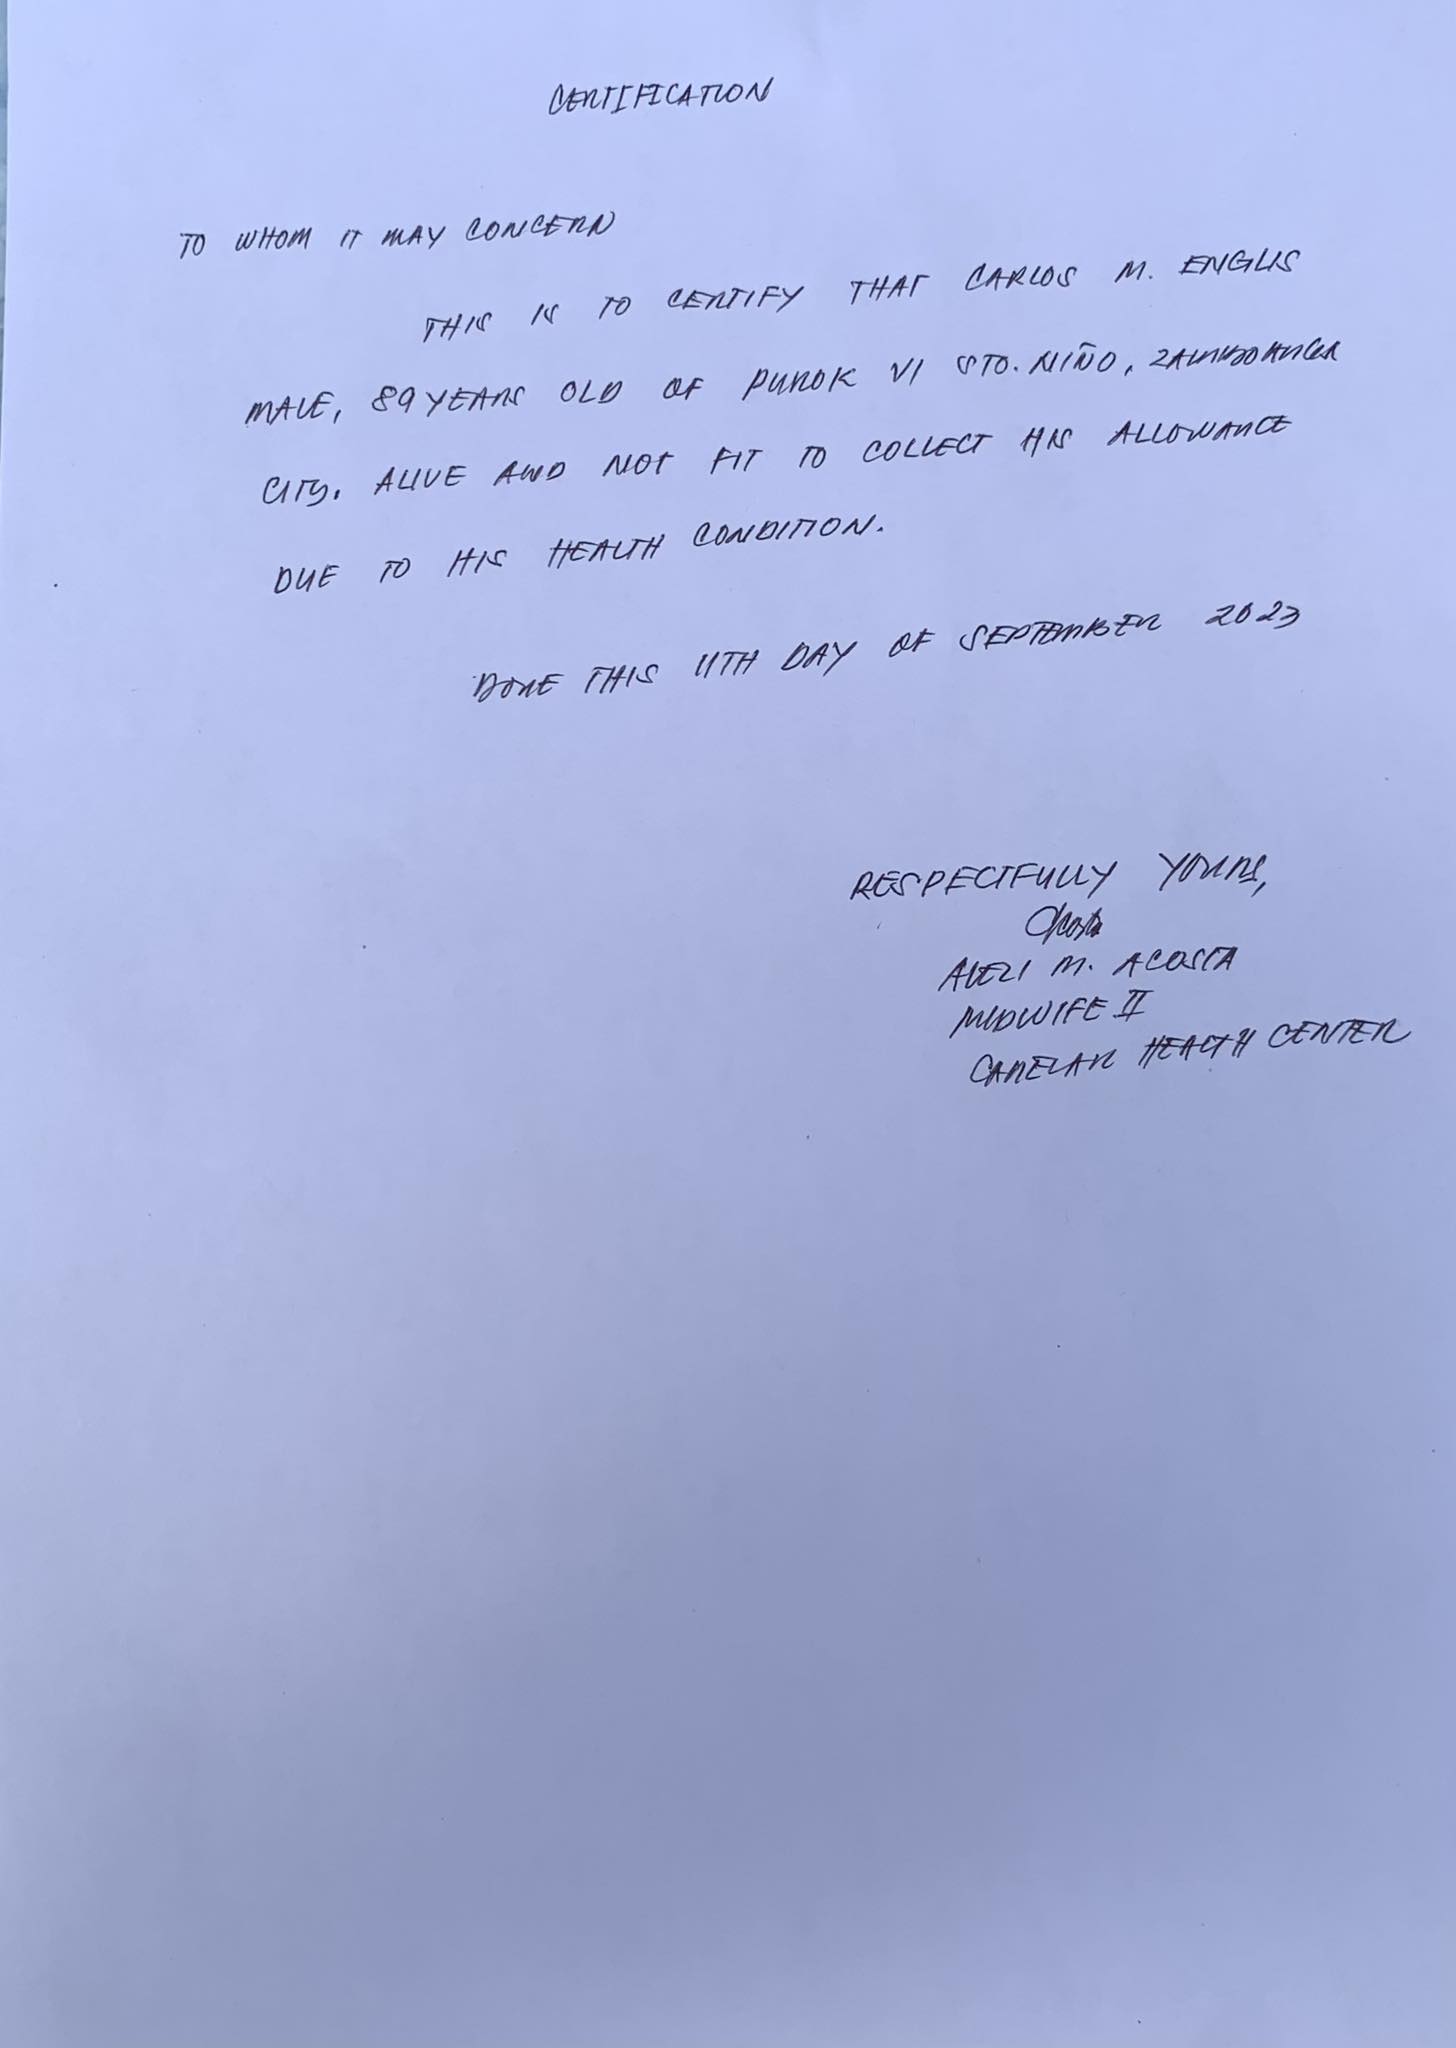 CERTIFICATION
TO WHOM IT MAY CONCERN
THIS IS TO CERTIFY THAT CARLOS M. ENGLIS
MALE, 89 YEARS OLD OF PUROK VI STO. NIÑO, ZAMBOANGA
CITY. ALIVE AND NOT FIT TO COLLECT HIS ALLOWANCE
DUE TO HIS HEALTH CONDITION.
DONE THIS 11TH DAY OF SEPTEMBER 2023
RESPECTFULLY YOURS,
M. ACOSTA
MIDWIFE II
CANELAR HEALTH CENTER